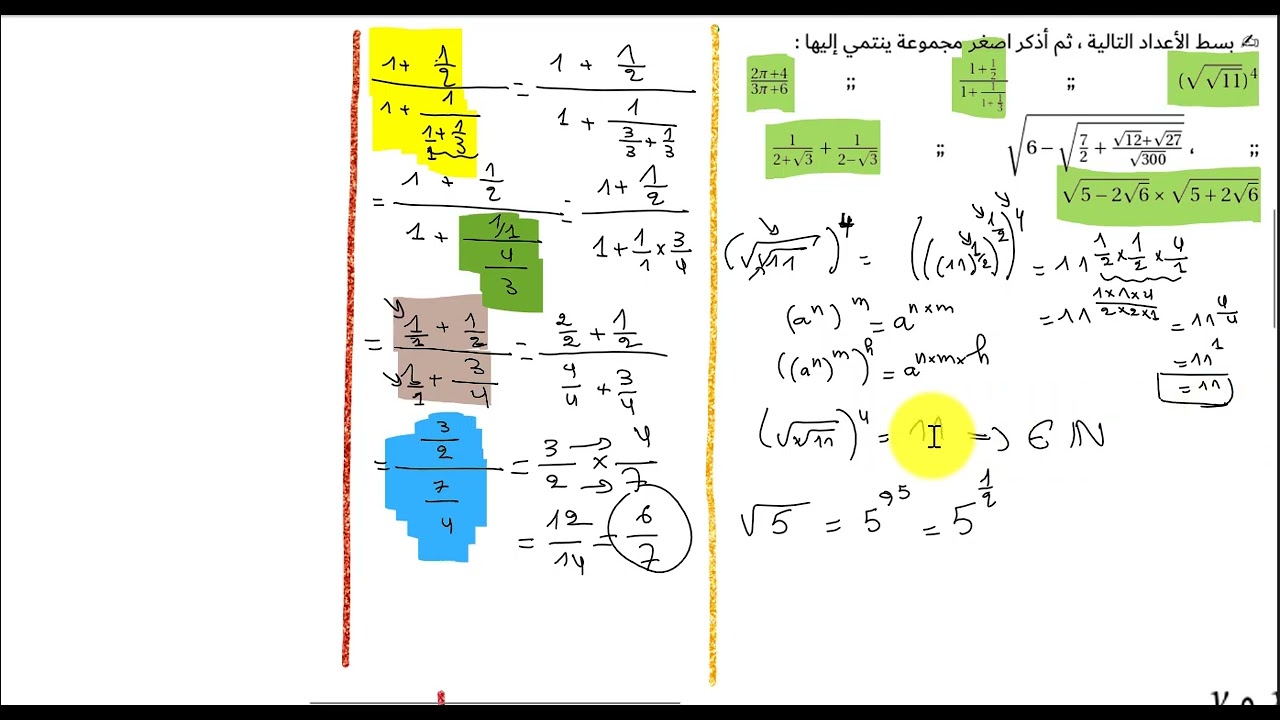 ✍ بسط الأعداد التالية ، ثم أذكر اصغر مجموعة ينتمي إليها :
(√√11)^4 ;; (1+1/2)/(1+1/(1+1/3)) ;; (2π+4)/(3π+6)
;; √(6−√(7/2+(√12+√27)/√300)) ، ;; 1/(2+√3) + 1/(2−√3)
√(5−2√6) × √(5+2√6)
(1+1/2)/(1+1/(1/1+1/3)) = (1+1/2)/(1+1/(3/3+1/3))
= (1+1/2)/(1+(1/1)/(4/3)) = (1+1/2)/(1+1/1×3/4)
= (1/1+1/2)/(1/1+3/4) = (2/2+1/2)/(4/4+3/4)
= (3/2)/(7/4) = 3/2 × 4/7
= 12/14 = 6/7
(√√11)^4 = (((11)^1/2)^1/2)^4 = 11^(1/2×1/2×4/1)
= 11^(1×1×4/2×2×1) = 11^(4/4)
= 11^1
= 11
(a^n)^m = a^(n×m)
((a^n)^m)^h = a^(n×m×h)
(√√11)^4 = 11 => ∈ ℕ
√5 = 5^(0,5) = 5^(1/2)